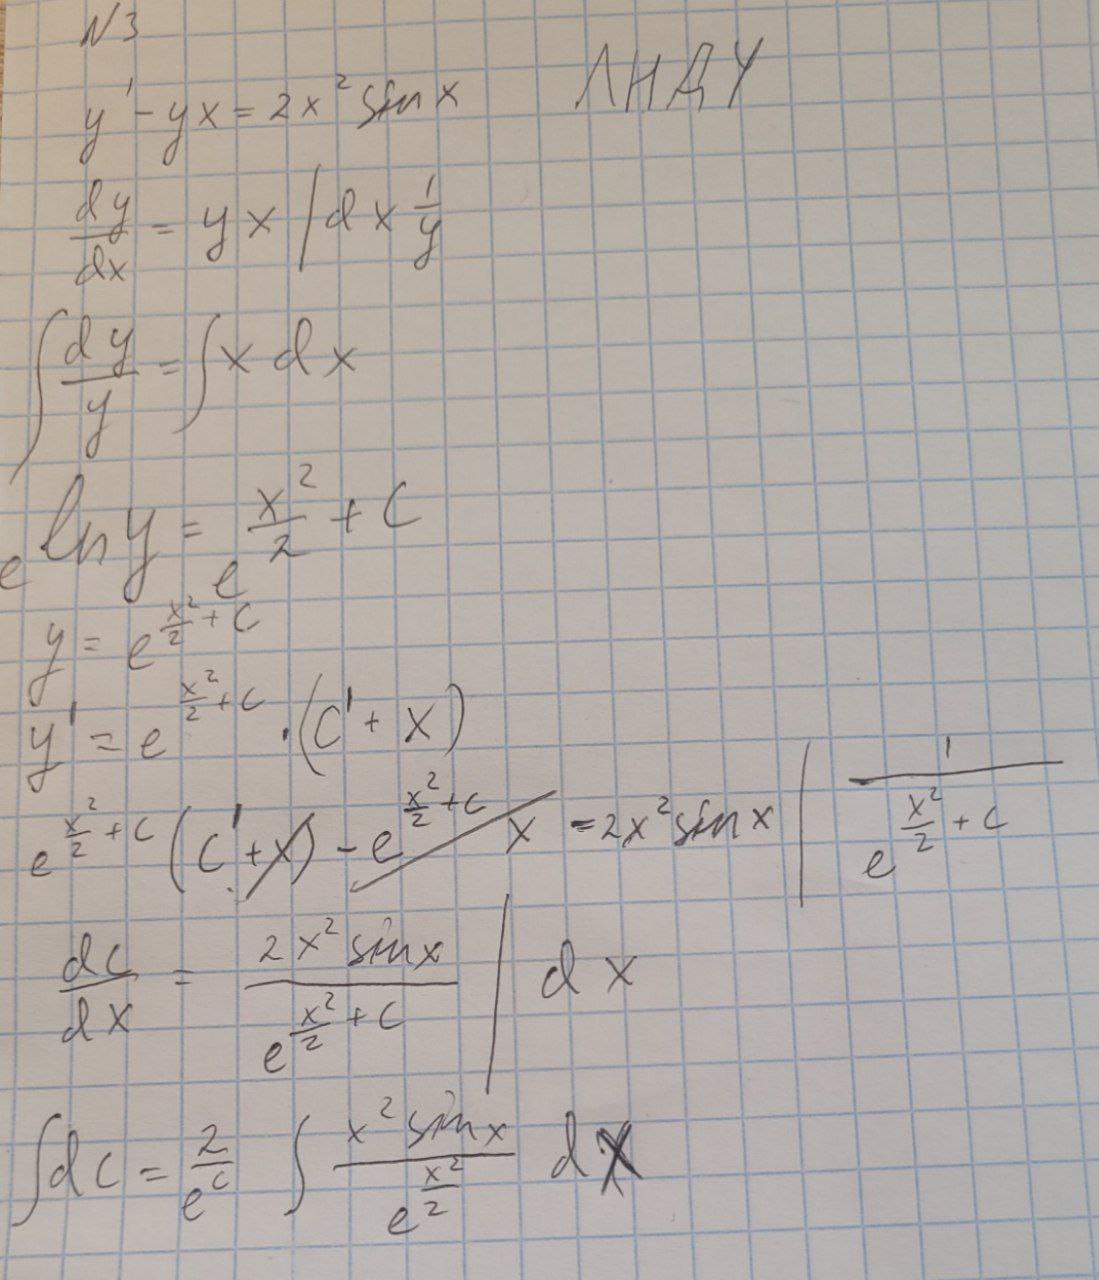 N3
y' - yx = 2x² sin x ЛНДУ
dy/dx = yx | dx 1/y
∫ dy/y = ∫ x dx
e^(ln y) = e^(x²/2 + C)
y = e^(x²/2 + C)
y' = e^(x²/2 + C) · (C' + x)
e^(x²/2 + C) (C' + x) - e^(x²/2 + C) x = 2x² sin x | 1/e^(x²/2 + C)
dC/dx = 2x² sin x / e^(x²/2 + C) | dx
∫ dC = 2/e^C ∫ x² sin x / e^(x²/2) dx